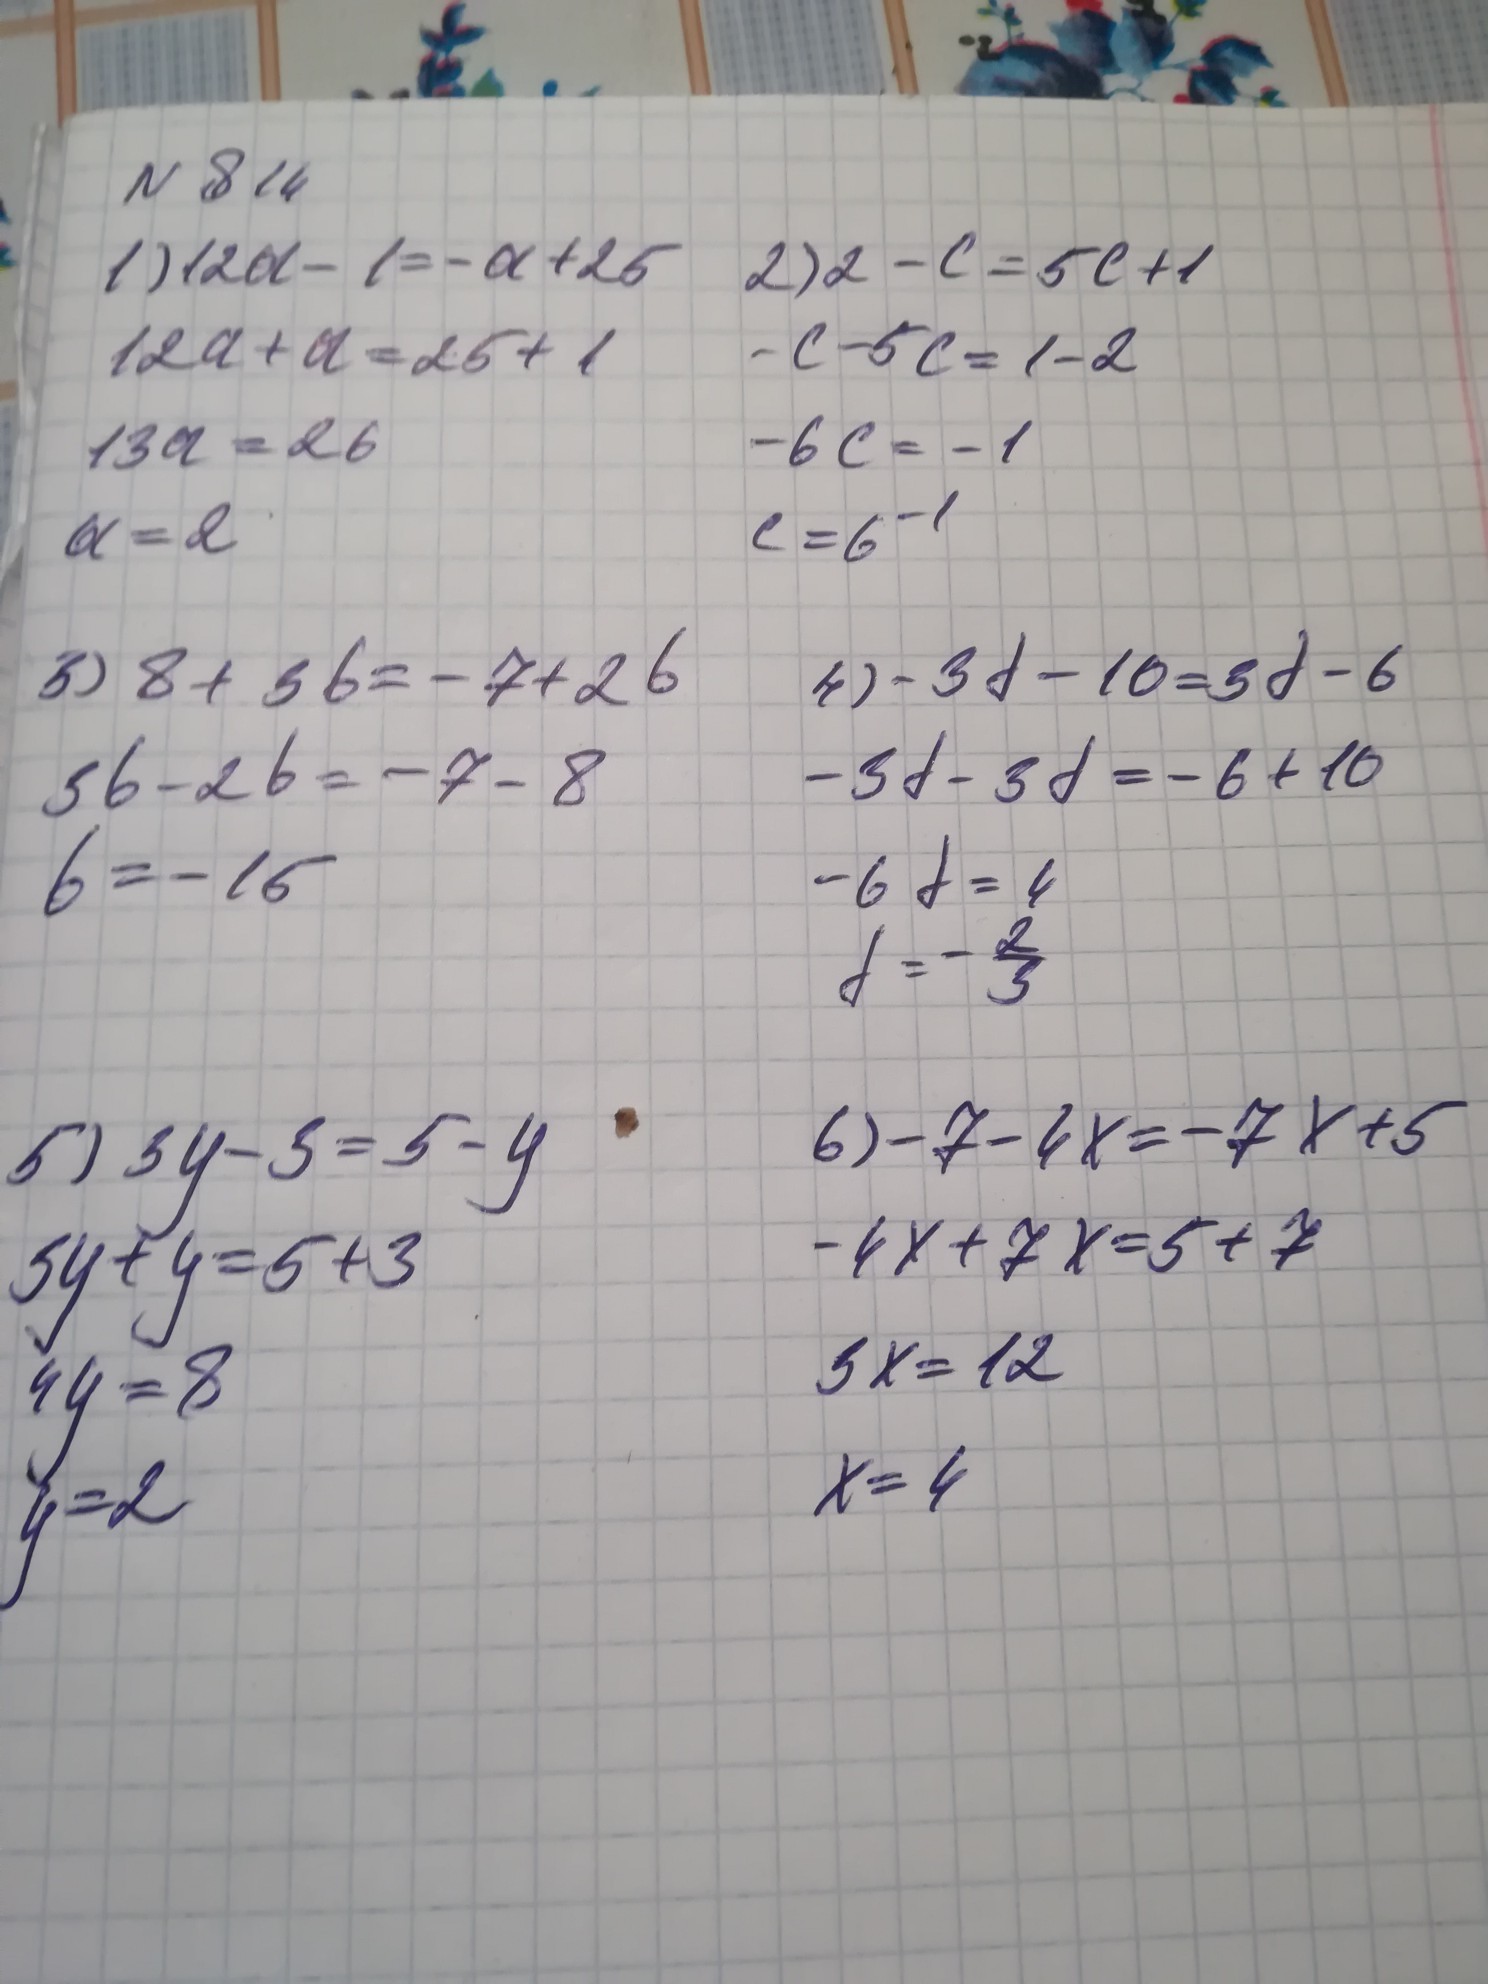 N 814
1) 12a - 1 = -a + 25
12a + a = 25 + 1
13a = 26
a = 2
2) 2 - c = 5c + 1
-c - 5c = 1 - 2
-6c = -1
c = 6⁻¹
3) 8 + 3b = -7 + 2b
3b - 2b = -7 - 8
b = -15
4) -3d - 10 = 3d - 6
-3d - 3d = -6 + 10
-6d = 4
d = -2/3
5) 3y - 3 = 5 - y
3y + y = 5 + 3
4y = 8
y = 2
6) -7 - 4x = -7x + 5
-4x + 7x = 5 + 7
3x = 12
x = 4